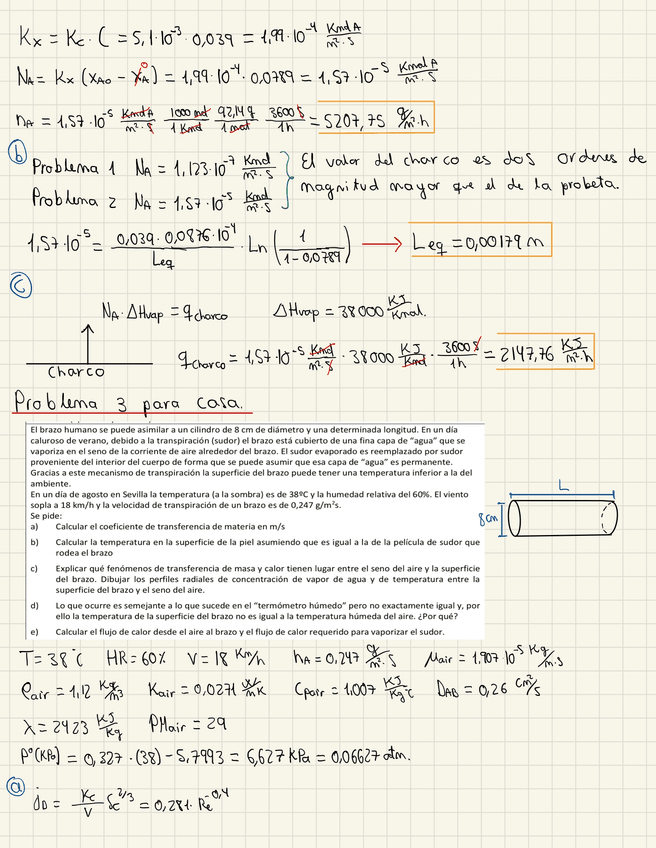 Kx = Kc · C = 5,1·10⁻³ · 0,039 = 1,99·10⁻⁴ Kmol A / m²·s
NA = Kx (XAo − XA⁰) = 1,99·10⁻⁴ · 0,0789 = 1,57·10⁻⁵ Kmol A / m²·s
nA = 1,57·10⁻⁵ Kmol A / m²·s 1000 mol / 1 Kmol 92,14 g / 1 mol 3600 s / 1h = 5207,75 g/m²·h
b Problema 1 NA = 1,123·10⁻⁷ Kmol / m²·s } El valor del charco es dos ordenes de
Problema 2 NA = 1,57·10⁻⁵ Kmol / m²·s magnitud mayor que el de la probeta.
1,57·10⁻⁵ = 0,039 · 0,0876·10⁻⁴ / Leq · Ln (1 / 1−0,0789) → Leq = 0,00179 m
c
NA · ΔHvap = qcharco ΔHvap = 38000 KJ / Kmol.
charco qcharco = 1,57·10⁻⁵ Kmol / m²·s · 38000 KJ / Kmol · 3600 s / 1h = 2147,76 KJ / m²·h
Problema 3 para casa.
El brazo humano se puede asimilar a un cilindro de 8 cm de diámetro y una determinada longitud. En un día
caluroso de verano, debido a la transpiración (sudor) el brazo está cubierto de una fina capa de “agua” que se
vaporiza en el seno de la corriente de aire alrededor del brazo. El sudor evaporado es reemplazado por sudor
proveniente del interior del cuerpo de forma que se puede asumir que esa capa de “agua” es permanente.
Gracias a este mecanismo de transpiración la superficie del brazo puede tener una temperatura inferior a la del
ambiente.
En un día de agosto en Sevilla la temperatura (a la sombra) es de 38ºC y la humedad relativa del 60%. El viento
sopla a 18 km/h y la velocidad de transpiración de un brazo es de 0,247 g/m²s.
Se pide:
a) Calcular el coeficiente de transferencia de materia en m/s
b) Calcular la temperatura en la superficie de la piel asumiendo que es igual a la de la película de sudor que
rodea el brazo
c) Explicar qué fenómenos de transferencia de masa y calor tienen lugar entre el seno del aire y la superficie
del brazo. Dibujar los perfiles radiales de concentración de vapor de agua y de temperatura entre la
superficie del brazo y el seno del aire.
d) Lo que ocurre es semejante a lo que sucede en el “termómetro húmedo” pero no exactamente igual y, por
ello la temperatura de la superficie del brazo no es igual a la temperatura húmeda del aire. ¿Por qué?
e) Calcular el flujo de calor desde el aire al brazo y el flujo de calor requerido para vaporizar el sudor.
L
8cm
T = 38°C HR = 60% V = 18 Km/h nA = 0,247 g/m²·s μair = 1.907 10⁻⁵ Kg/m·s
ρair = 1,12 Kg/m³ Kair = 0,0271 W/mK Cpair = 1,007 KJ/Kg°C DAB = 0,26 cm²/s
λ = 2423 KJ/Kg PMair = 29
P°(KPa) = 0,327 · (38) − 5,7993 = 6,627 kPa = 0,06627 atm.
a jD = Kc / V Sc^2/3 = 0,281 · Re^−0,4